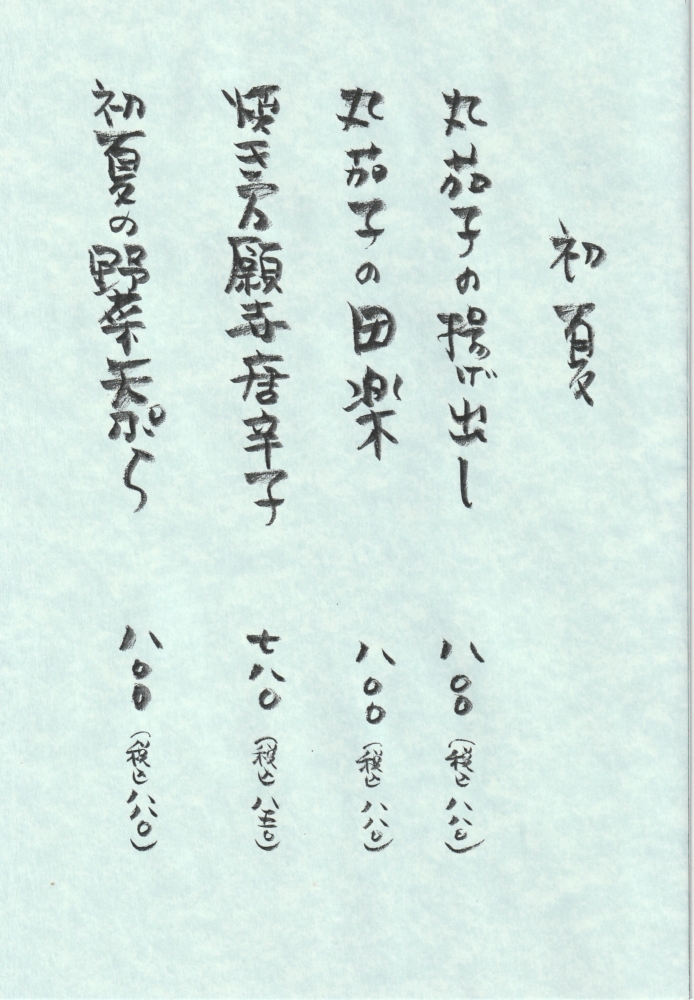 初夏
丸茄子の揚げ出し 八〇〇（税込八八〇）
丸茄子の田楽 八〇〇（税込八八〇）
焼き万願寺唐辛子 七八〇（税込八五〇）
初夏の野菜天ぷら 八〇〇（税込八八〇）